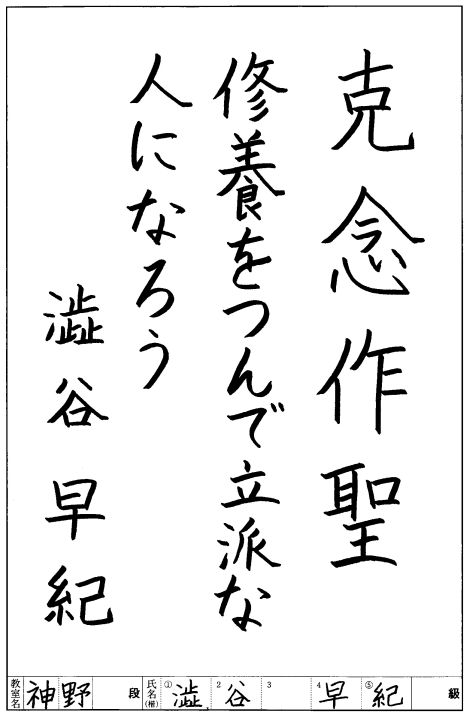 克念作聖
修養をつんで立派な
人になろう
澁谷早紀
教室名 神野 段 氏名(楷) ①澁 2谷 3 4早 ⑤紀 級